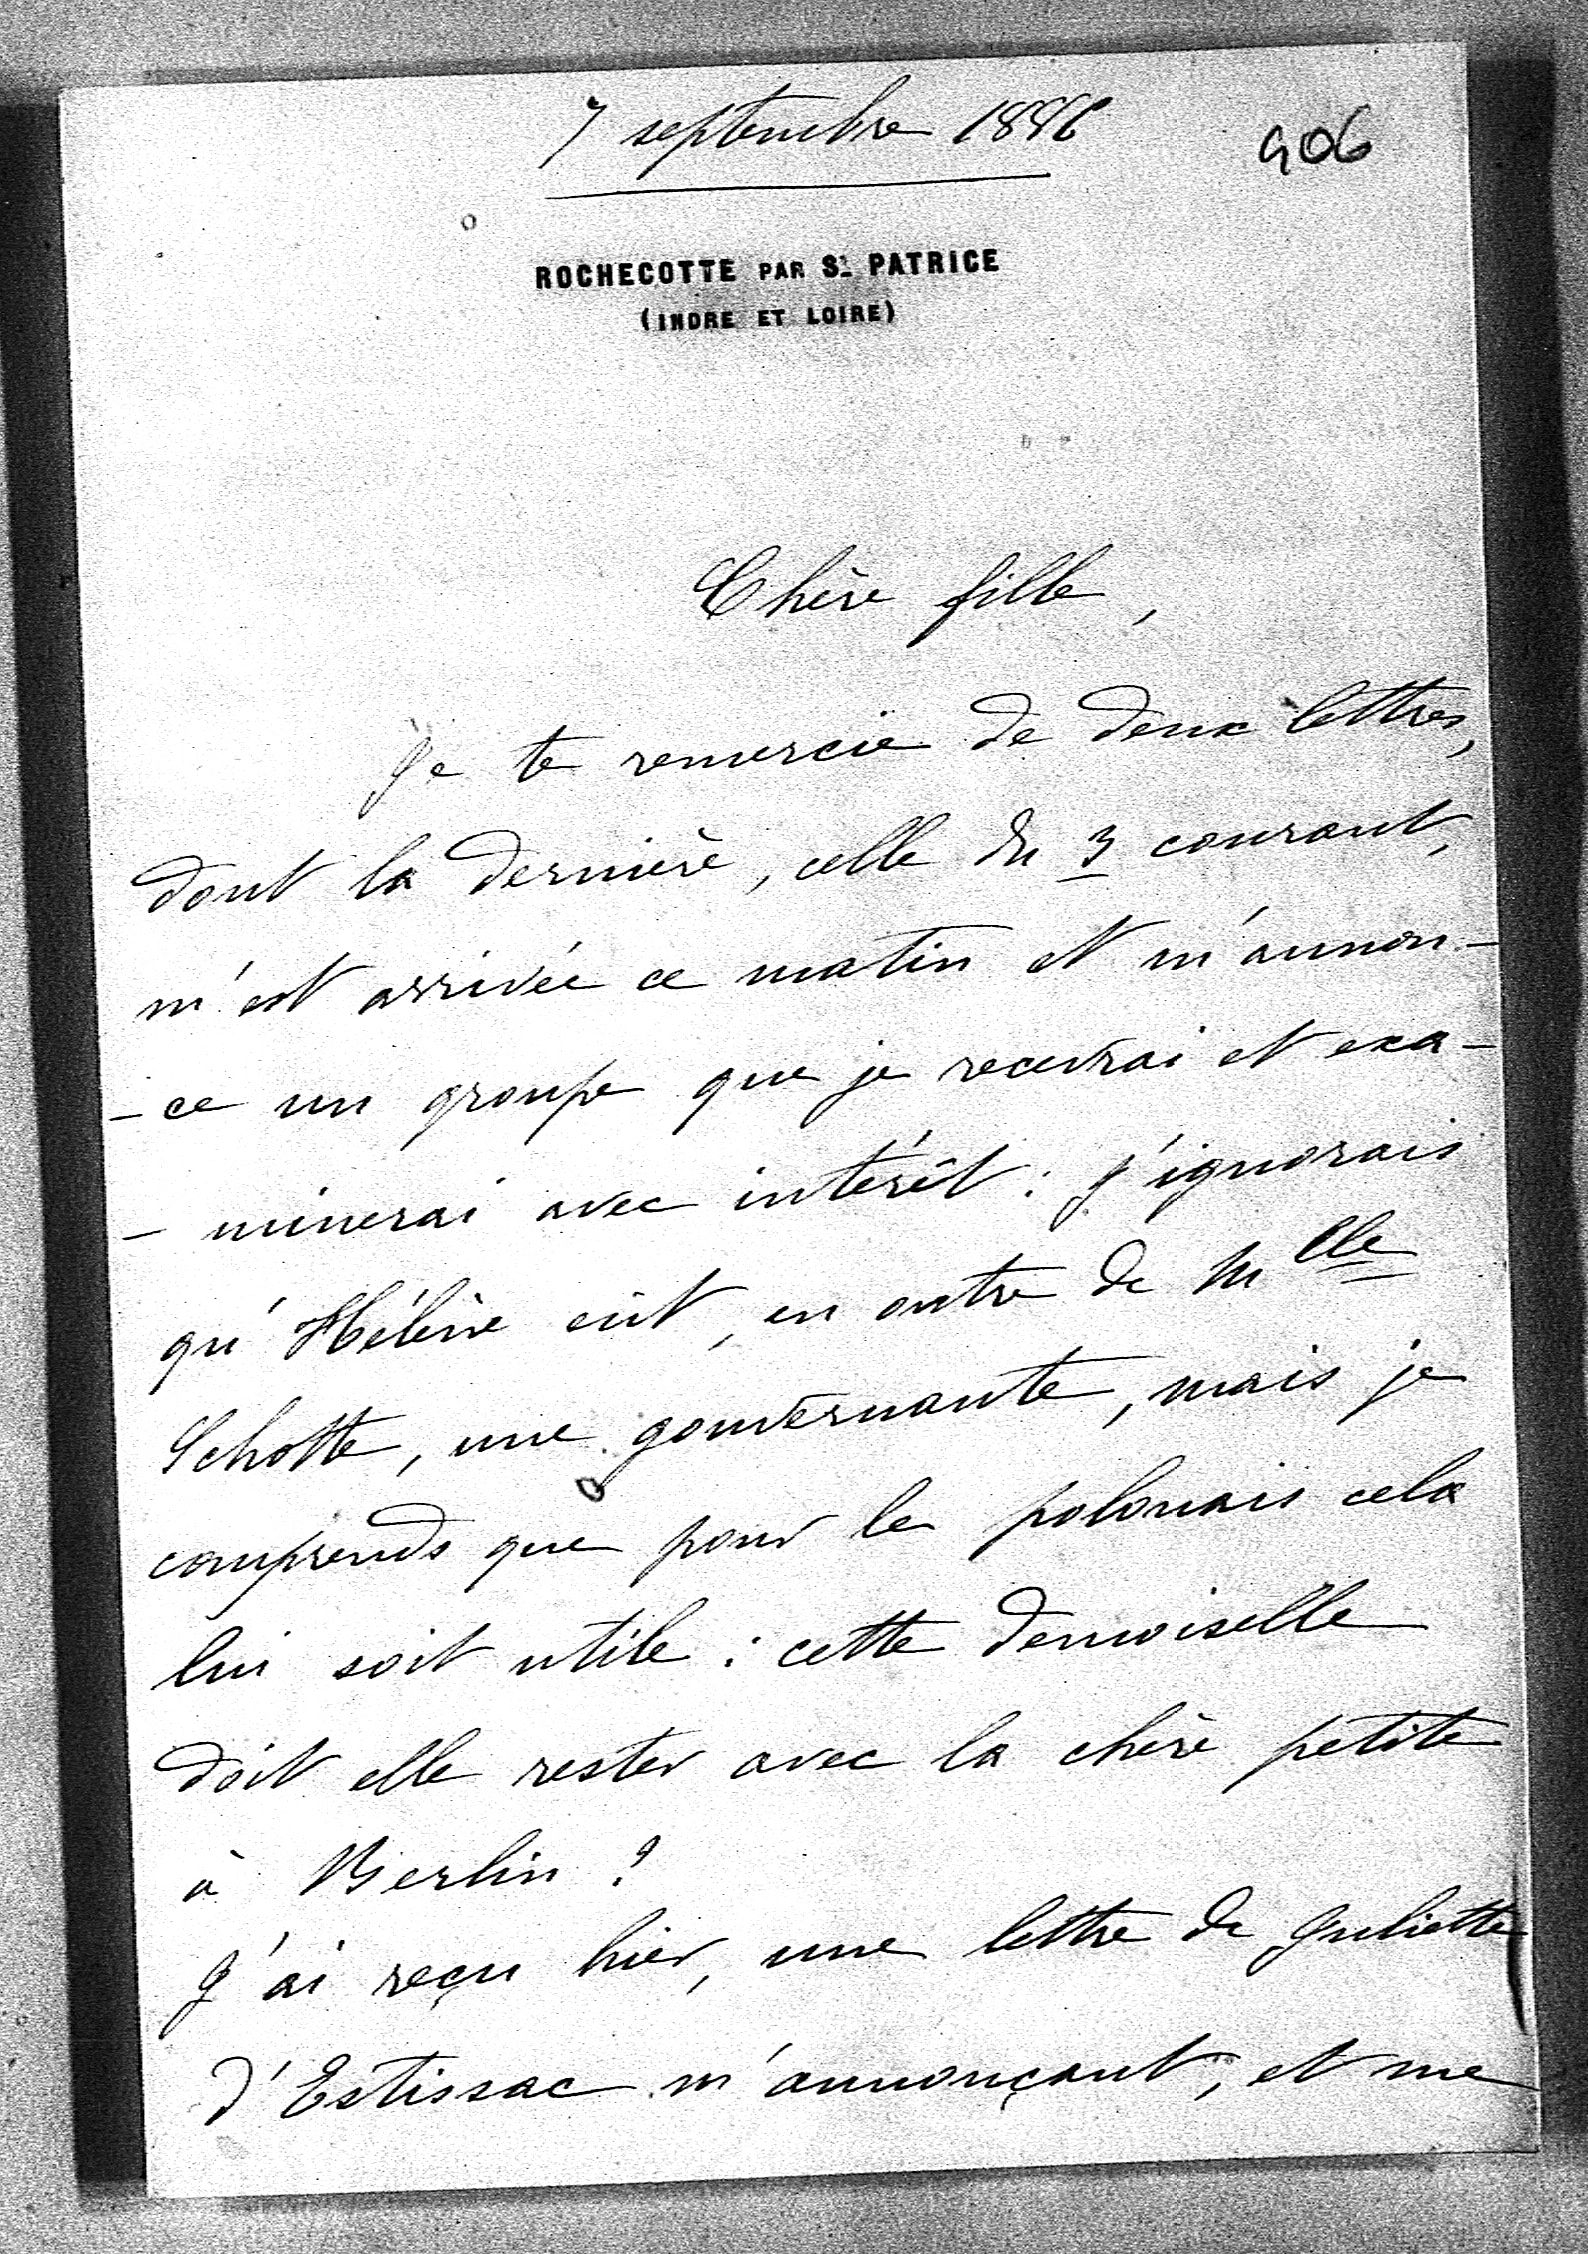 7 septembre 1886
906
ROCHECOTTE PAR St. PATRICE
(INDRE ET LOIRE)
Chère fille,
Je te remercie de deux lettres,
dont la dernière, celle du 3 courant,
m'est arrivée ce matin et m'annon-
-ce un groupe que je recevrai et exa-
-minerai avec intérêt : j'ignorais
qu'Hélène eût, en outre de Mlle
Schotte, une gouvernante, mais je
comprends que pour le polonais cela
lui soit utile : cette demoiselle
doit elle rester avec la chère petite
à Berlin ?
J'ai reçu hier, une lettre de Juliette
d'Estissac m'annonçant, et me